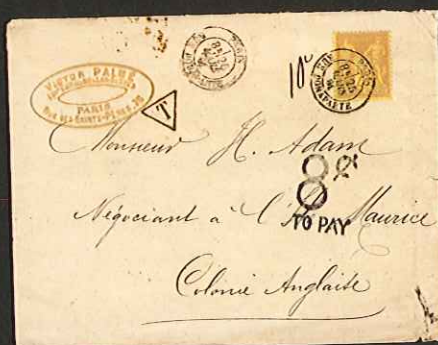 VICTOR PALMÉ
PARIS
RUE DES SAINTS-PÈRES, 76
T
PARIS
RUE BONAPARTE
PARIS
RUE BONAPARTE
Monsieur H. Adam
8
Négociant à l'Ile Maurice
TO PAY
Colonie Anglaise